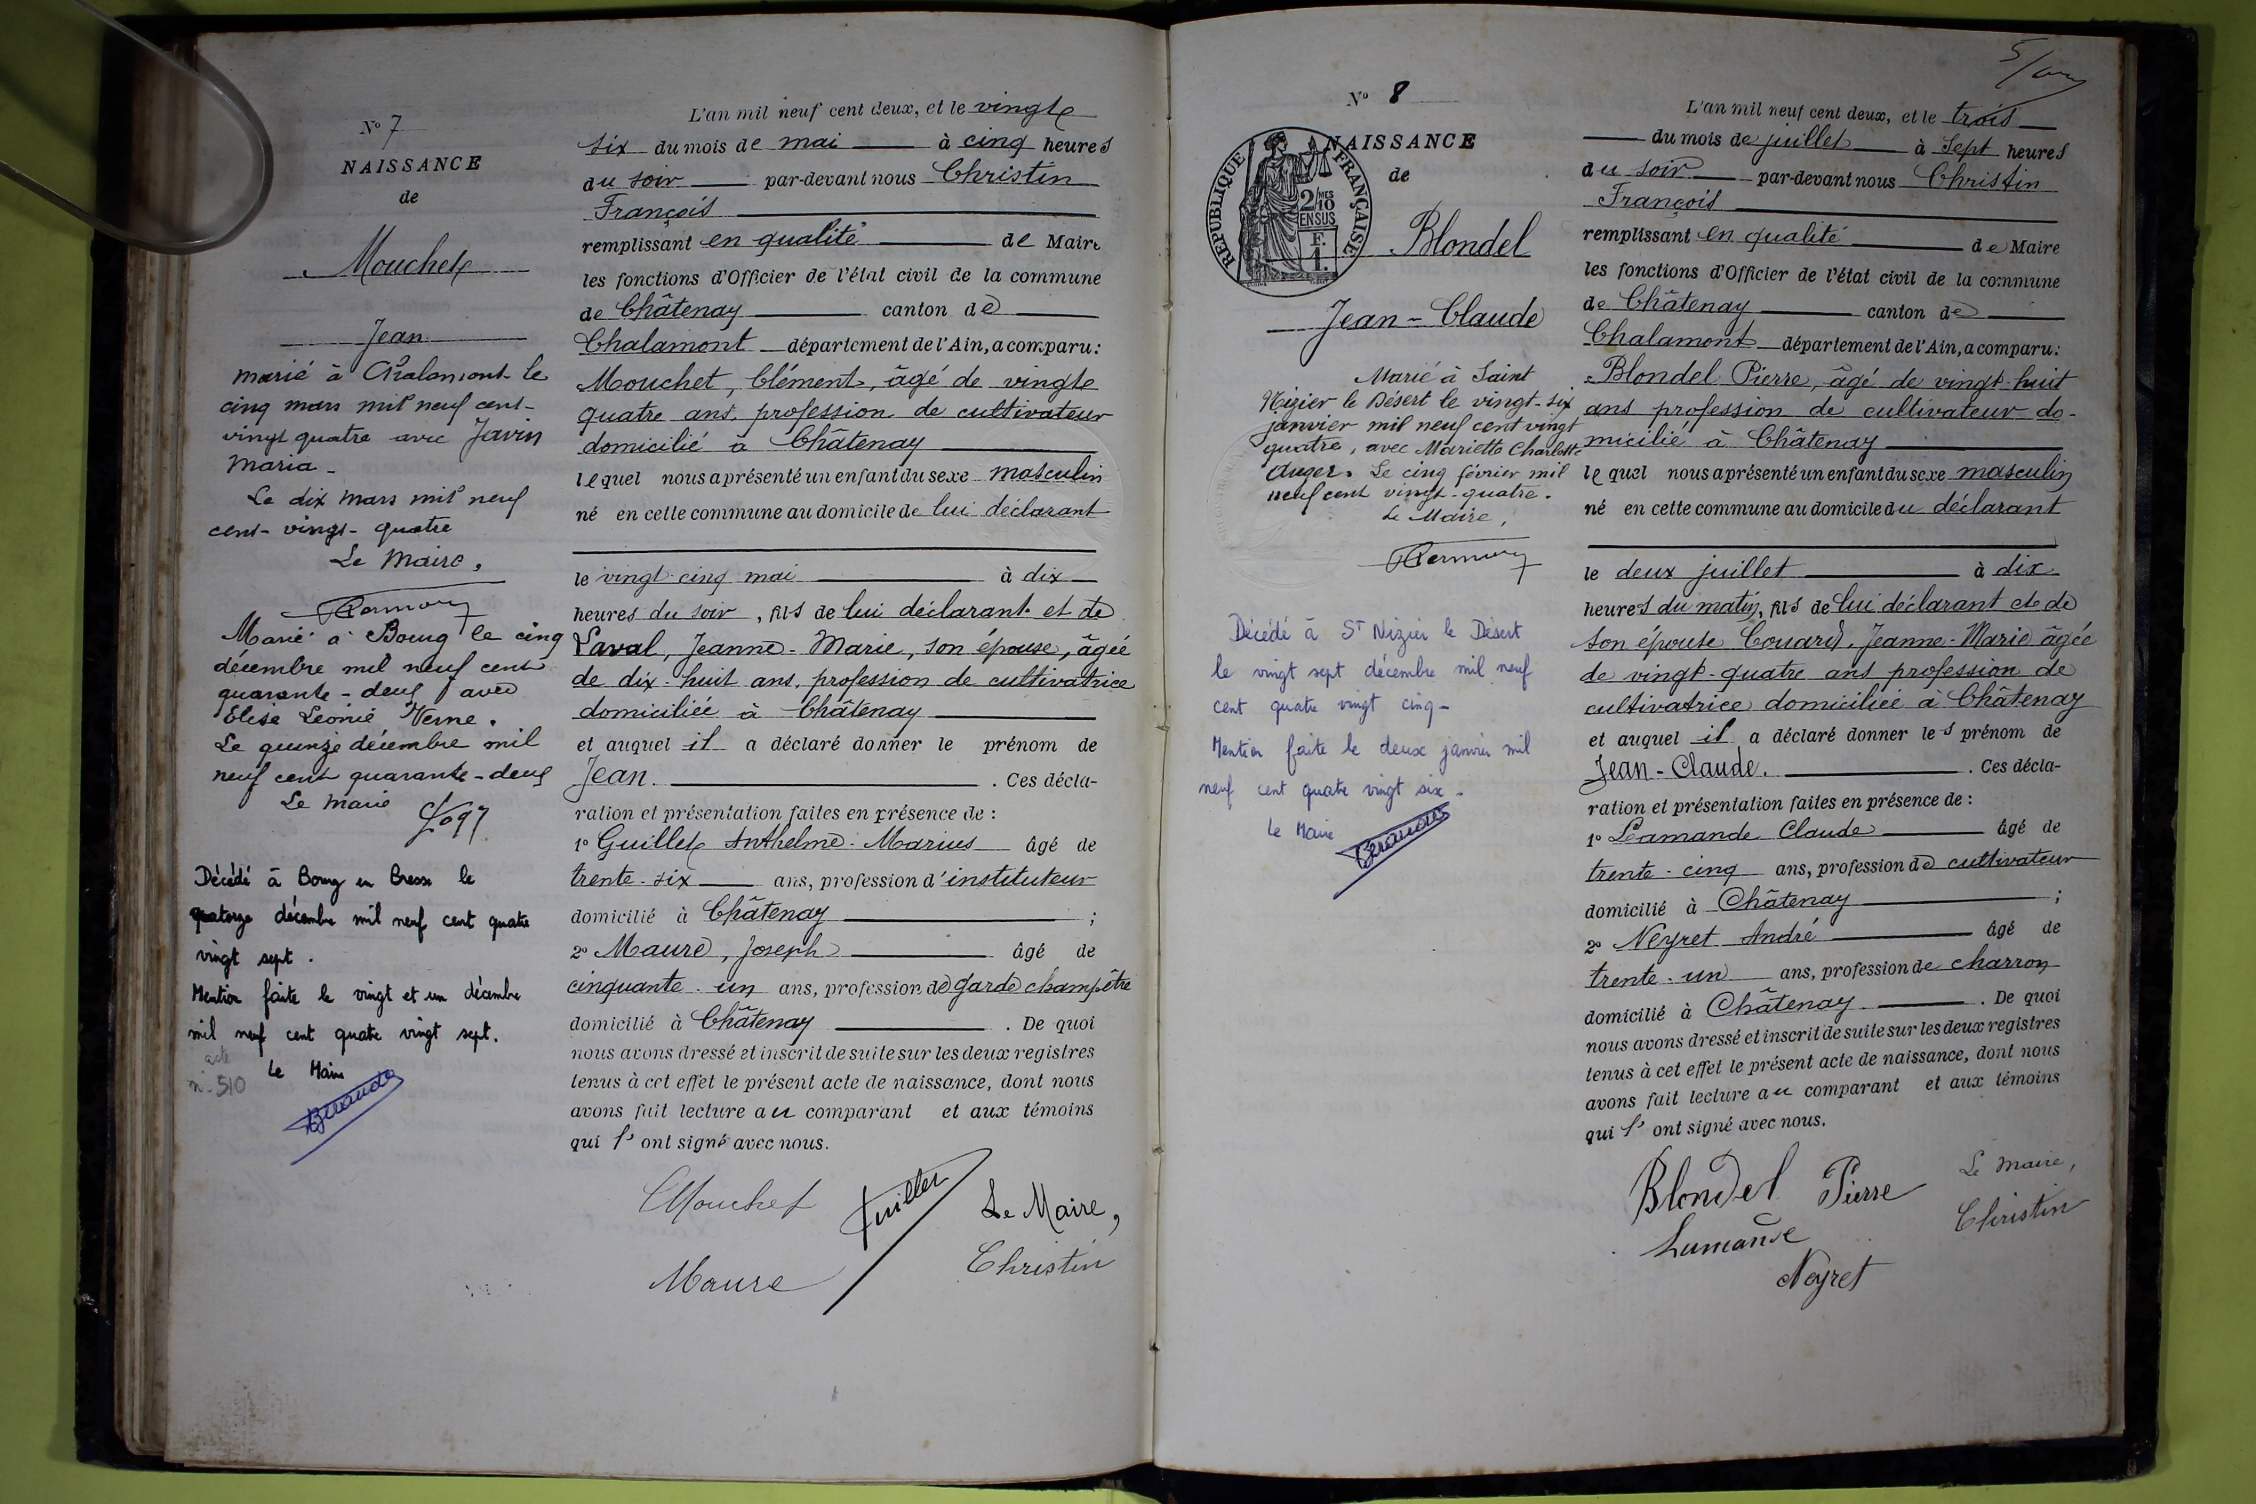 N° 7
NAISSANCE
de
Mouchet
Jean
marié à Chalamont le
cinq mars mil neuf cent
vingt quatre avec Javin
Maria.
Le dix mars mil neuf
cent vingt-quatre
Le Maire,
Marié à Bourg le cinq
décembre mil neuf cent
quarante-deux avec
Elise Léonie Verne.
Le quinze décembre mil
neuf cent quarante-deux
Le Maire
Décédé à Bourg en Bresse le
quatorze décembre mil neuf cent quatre
vingt sept.
Mention faite le vingt et un décembre
mil neuf cent quatre vingt sept.
acte
n° 510
Le Maire
L'an mil neuf cent deux, et le vingt
six du mois de mai à cinq heures
du soir par-devant nous Christin
François
remplissant en qualité de Maire
les fonctions d'Officier de l'état civil de la commune
de Châtenay canton de
Chalamont département de l'Ain, a comparu:
Mouchet, Clément, âgé de vingt
quatre ans, profession de cultivateur
domicilié à Châtenay
lequel nous a présenté un enfant du sexe masculin
né en cette commune au domicile de lui déclarant
le vingt cinq mai à dix
heures du soir, fils de lui déclarant et de
Laval, Jeanne-Marie, son épouse, âgée
de dix-huit ans, profession de cultivatrice
domiciliée à Châtenay
et auquel il a déclaré donner le prénom de
Jean. . Ces décla-
ration et présentation faites en présence de :
1° Guillet Anthelme-Marius âgé de
trente-six ans, profession d'instituteur
domicilié à Châtenay ;
2° Maure, Joseph âgé de
cinquante-un ans, profession de garde champêtre
domicilié à Châtenay . De quoi
nous avons dressé et inscrit de suite sur les deux registres
tenus à cet effet le présent acte de naissance, dont nous
avons fait lecture au comparant et aux témoins
qui l'ont signé avec nous.
CMouchet Guillet Le Maire,
Maure Christin
N° 8
NAISSANCE
de
REPUBLIQUE FRANÇAISE
2/10 MES
EN SUS
F.
1.
Blondel
Jean-Claude
Marié à Saint
Nizier le Désert le vingt-six
janvier mil neuf cent vingt
quatre, avec Mariette Charlotte
Auger. Le cinq février mil
neuf cent vingt-quatre.
Le Maire,
Décédé à St Nizier le Désert
le vingt sept décembre mil neuf
cent quatre vingt cinq-
Mention faite le deux janvier mil
neuf cent quatre vingt six.
Le Maire
L'an mil neuf cent deux, et le trois
du mois de juillet à sept heures
du soir par-devant nous Christin
François
remplissant en qualité de Maire
les fonctions d'Officier de l'état civil de la commune
de Châtenay canton de
Chalamont département de l'Ain, a comparu:
Blondel Pierre, âgé de vingt-huit
ans profession de cultivateur do-
micilié à Châtenay
lequel nous a présenté un enfant du sexe masculin
né en cette commune au domicile du déclarant
le deux juillet à dix
heures du matin, fils de lui déclarant et de
son épouse Couard, Jeanne-Marie âgée
de vingt-quatre ans profession de
cultivatrice domiciliée à Châtenay
et auquel il a déclaré donner les prénom de
Jean-Claude. . Ces décla-
ration et présentation faites en présence de :
1° Lamande Claude âgé de
trente-cinq ans, profession de cultivateur
domicilié à Châtenay ;
2° Neyret André âgé de
trente-un ans, profession de charron
domicilié à Châtenay . De quoi
nous avons dressé et inscrit de suite sur les deux registres
tenus à cet effet le présent acte de naissance, dont nous
avons fait lecture au comparant et aux témoins
qui l'ont signé avec nous.
Blondel Pierre Le Maire,
Lamande Christin
Neyret